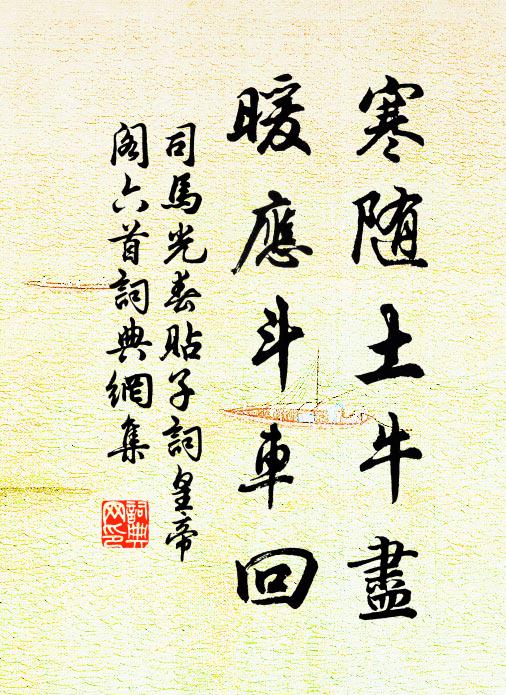 寒随土牛盡
暖應斗車回
司馬光春貼子詞皇帝
閣六首詞典網集
詞典
网印